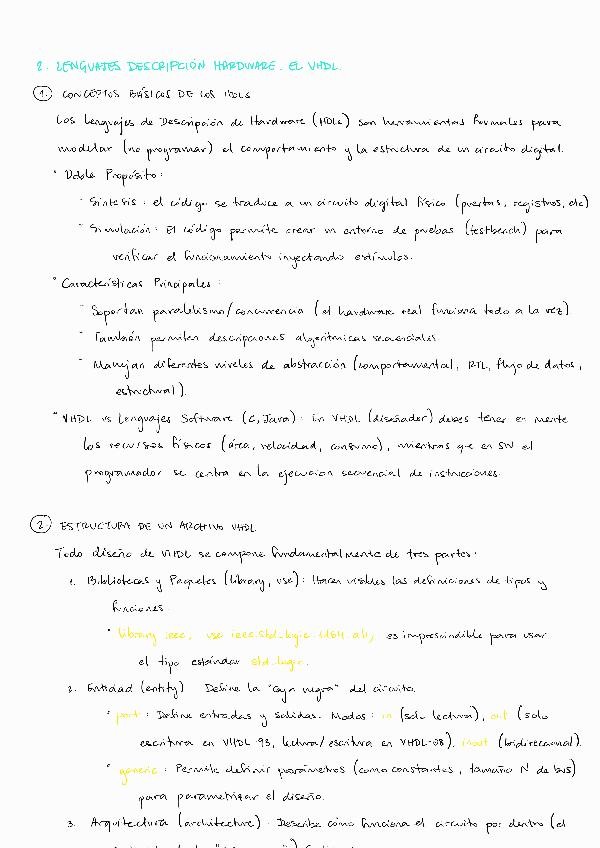 2. LENGUAJES DESCRIPCIÓN HARDWARE. EL VHDL.
1 CONCEPTOS BÁSICOS DE LOS HDLs
Los Lenguajes de Descripción de Hardware (HDLs) son herramientas formales para
modelar (no programar) el comportamiento y la estructura de un circuito digital.
° Doble Propósito:
- Síntesis: el código se traduce a un circuito digital físico (puertas, registros, etc)
- Simulación: El código permite crear un entorno de pruebas (testbench) para
verificar el funcionamiento inyectando estímulos.
° Características Principales:
- Soportan paralelismo/concurrencia (el hardware real funciona todo a la vez).
- También permiten descripciones algorítmicas secuenciales.
- Manejan diferentes niveles de abstracción (comportamental, RTL, flujo de datos,
estructural).
° VHDL vs Lenguajes Software (C, Java): En VHDL (diseñador) debes tener en mente
los recursos físicos (área, velocidad, consumo), mientras que en SW el
programador se centra en la ejecución secuencial de instrucciones.
2 ESTRUCTURA DE UN ARCHIVO VHDL
Todo diseño de VHDL se compone fundamentalmente de tres partes:
1. Bibliotecas y Paquetes (library, use): Hacen visibles las definiciones de tipos y
funciones.
° library ieee; use ieee.std_logic_1164.all; es imprescindible para usar
el tipo estándar std_logic.
2. Entidad (entity) Define la "caja negra" del circuito.
° port: Define entradas y salidas. Modos: in (solo lectura), out (solo
escritura en VHDL-93, lectura/escritura en VHDL-08), inout (bidireccional).
° generic: Permite definir parámetros (como constantes, tamaño N de bus)
para parametrizar el diseño.
3. Arquitectura (architecture): Describe cómo funciona el circuito por dentro (el